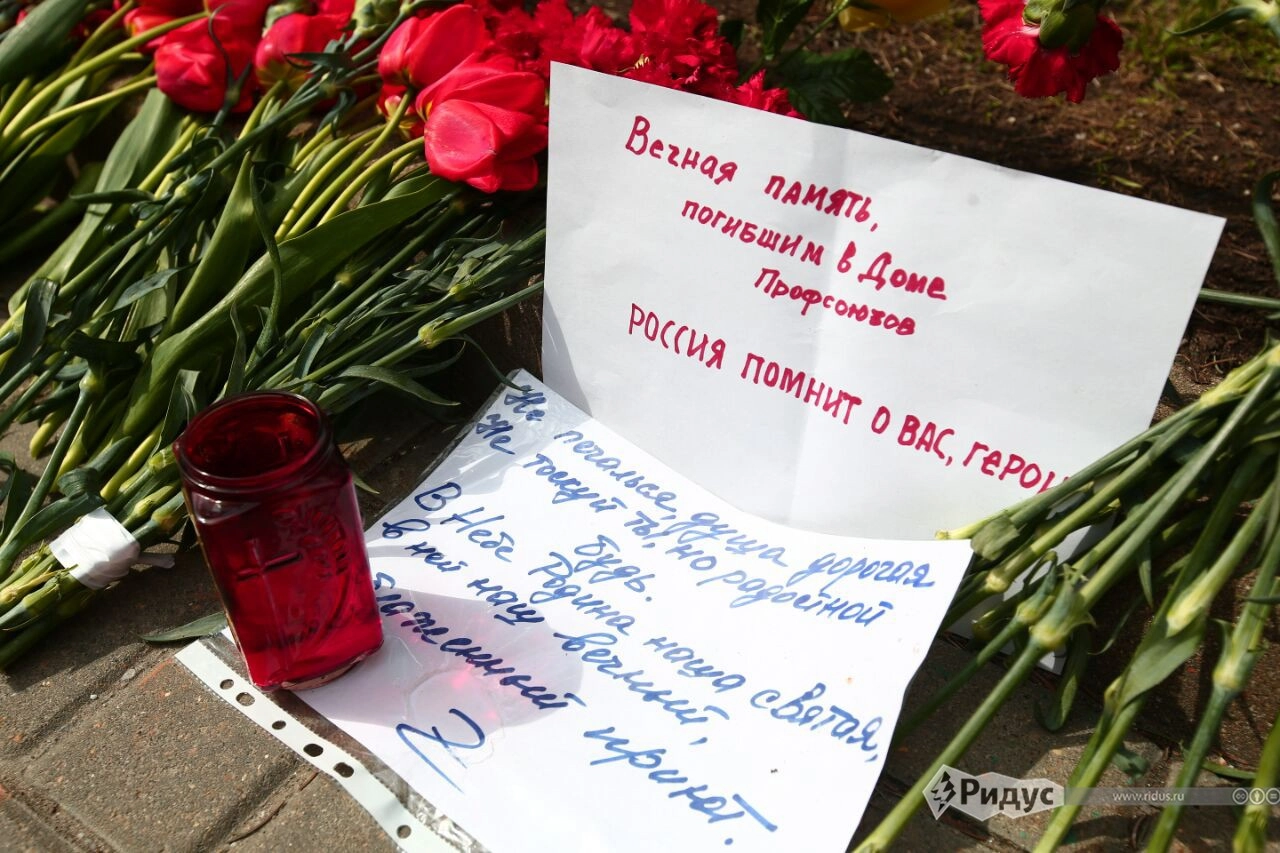 Вечная память,
погибшим в Доме
Профсоюзов
РОССИЯ ПОМНИТ О ВАС, ГЕРОИ
Не печалься, душа дорогая
Не тоскуй ты, но радостной
будь.
В Небе Родина наша святая,
в ней наш вечный,
блаженный приют.
Ридус
www.ridus.ru